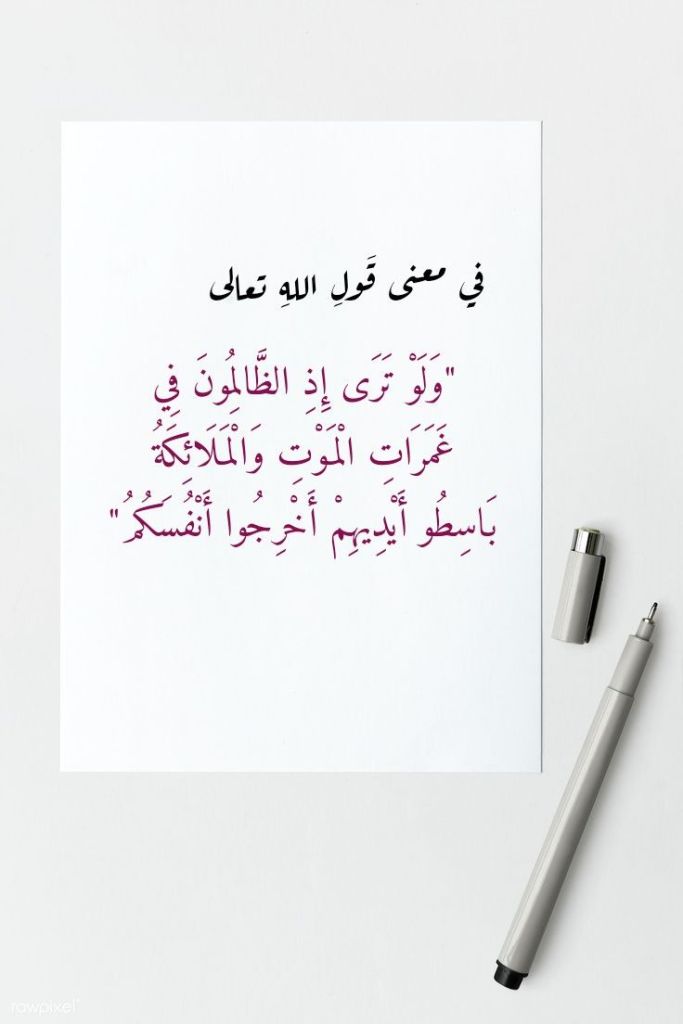 في معنى قَولِ اللهِ تعالى
"وَلَوْ تَرَى إِذِ الظَّالِمُونَ فِي
غَمَرَاتِ الْمَوْتِ وَالْمَلَائِكَةُ
بَاسِطُو أَيْدِيهِمْ أَخْرِجُوا أَنْفُسَكُمُ"
rawpixel